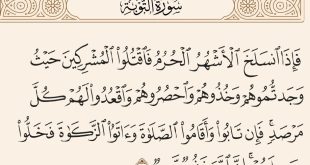 سُورَةُ التَّوْبَةِ
فَإِذَا ٱنسَلَخَ ٱلْأَشْهُرُ ٱلْحُرُمُ فَٱقْتُلُوا۟ ٱلْمُشْرِكِينَ حَيْثُ
وَجَدتُّمُوهُمْ وَخُذُوهُمْ وَٱحْصُرُوهُمْ وَٱقْعُدُوا۟ لَهُمْ كُلَّ
مَرْصَدٍ ۚ فَإِن تَابُوا۟ وَأَقَامُوا۟ ٱلصَّلَوٰةَ وَءَاتَوُا۟ ٱلزَّكَوٰةَ فَخَلُّوا۟